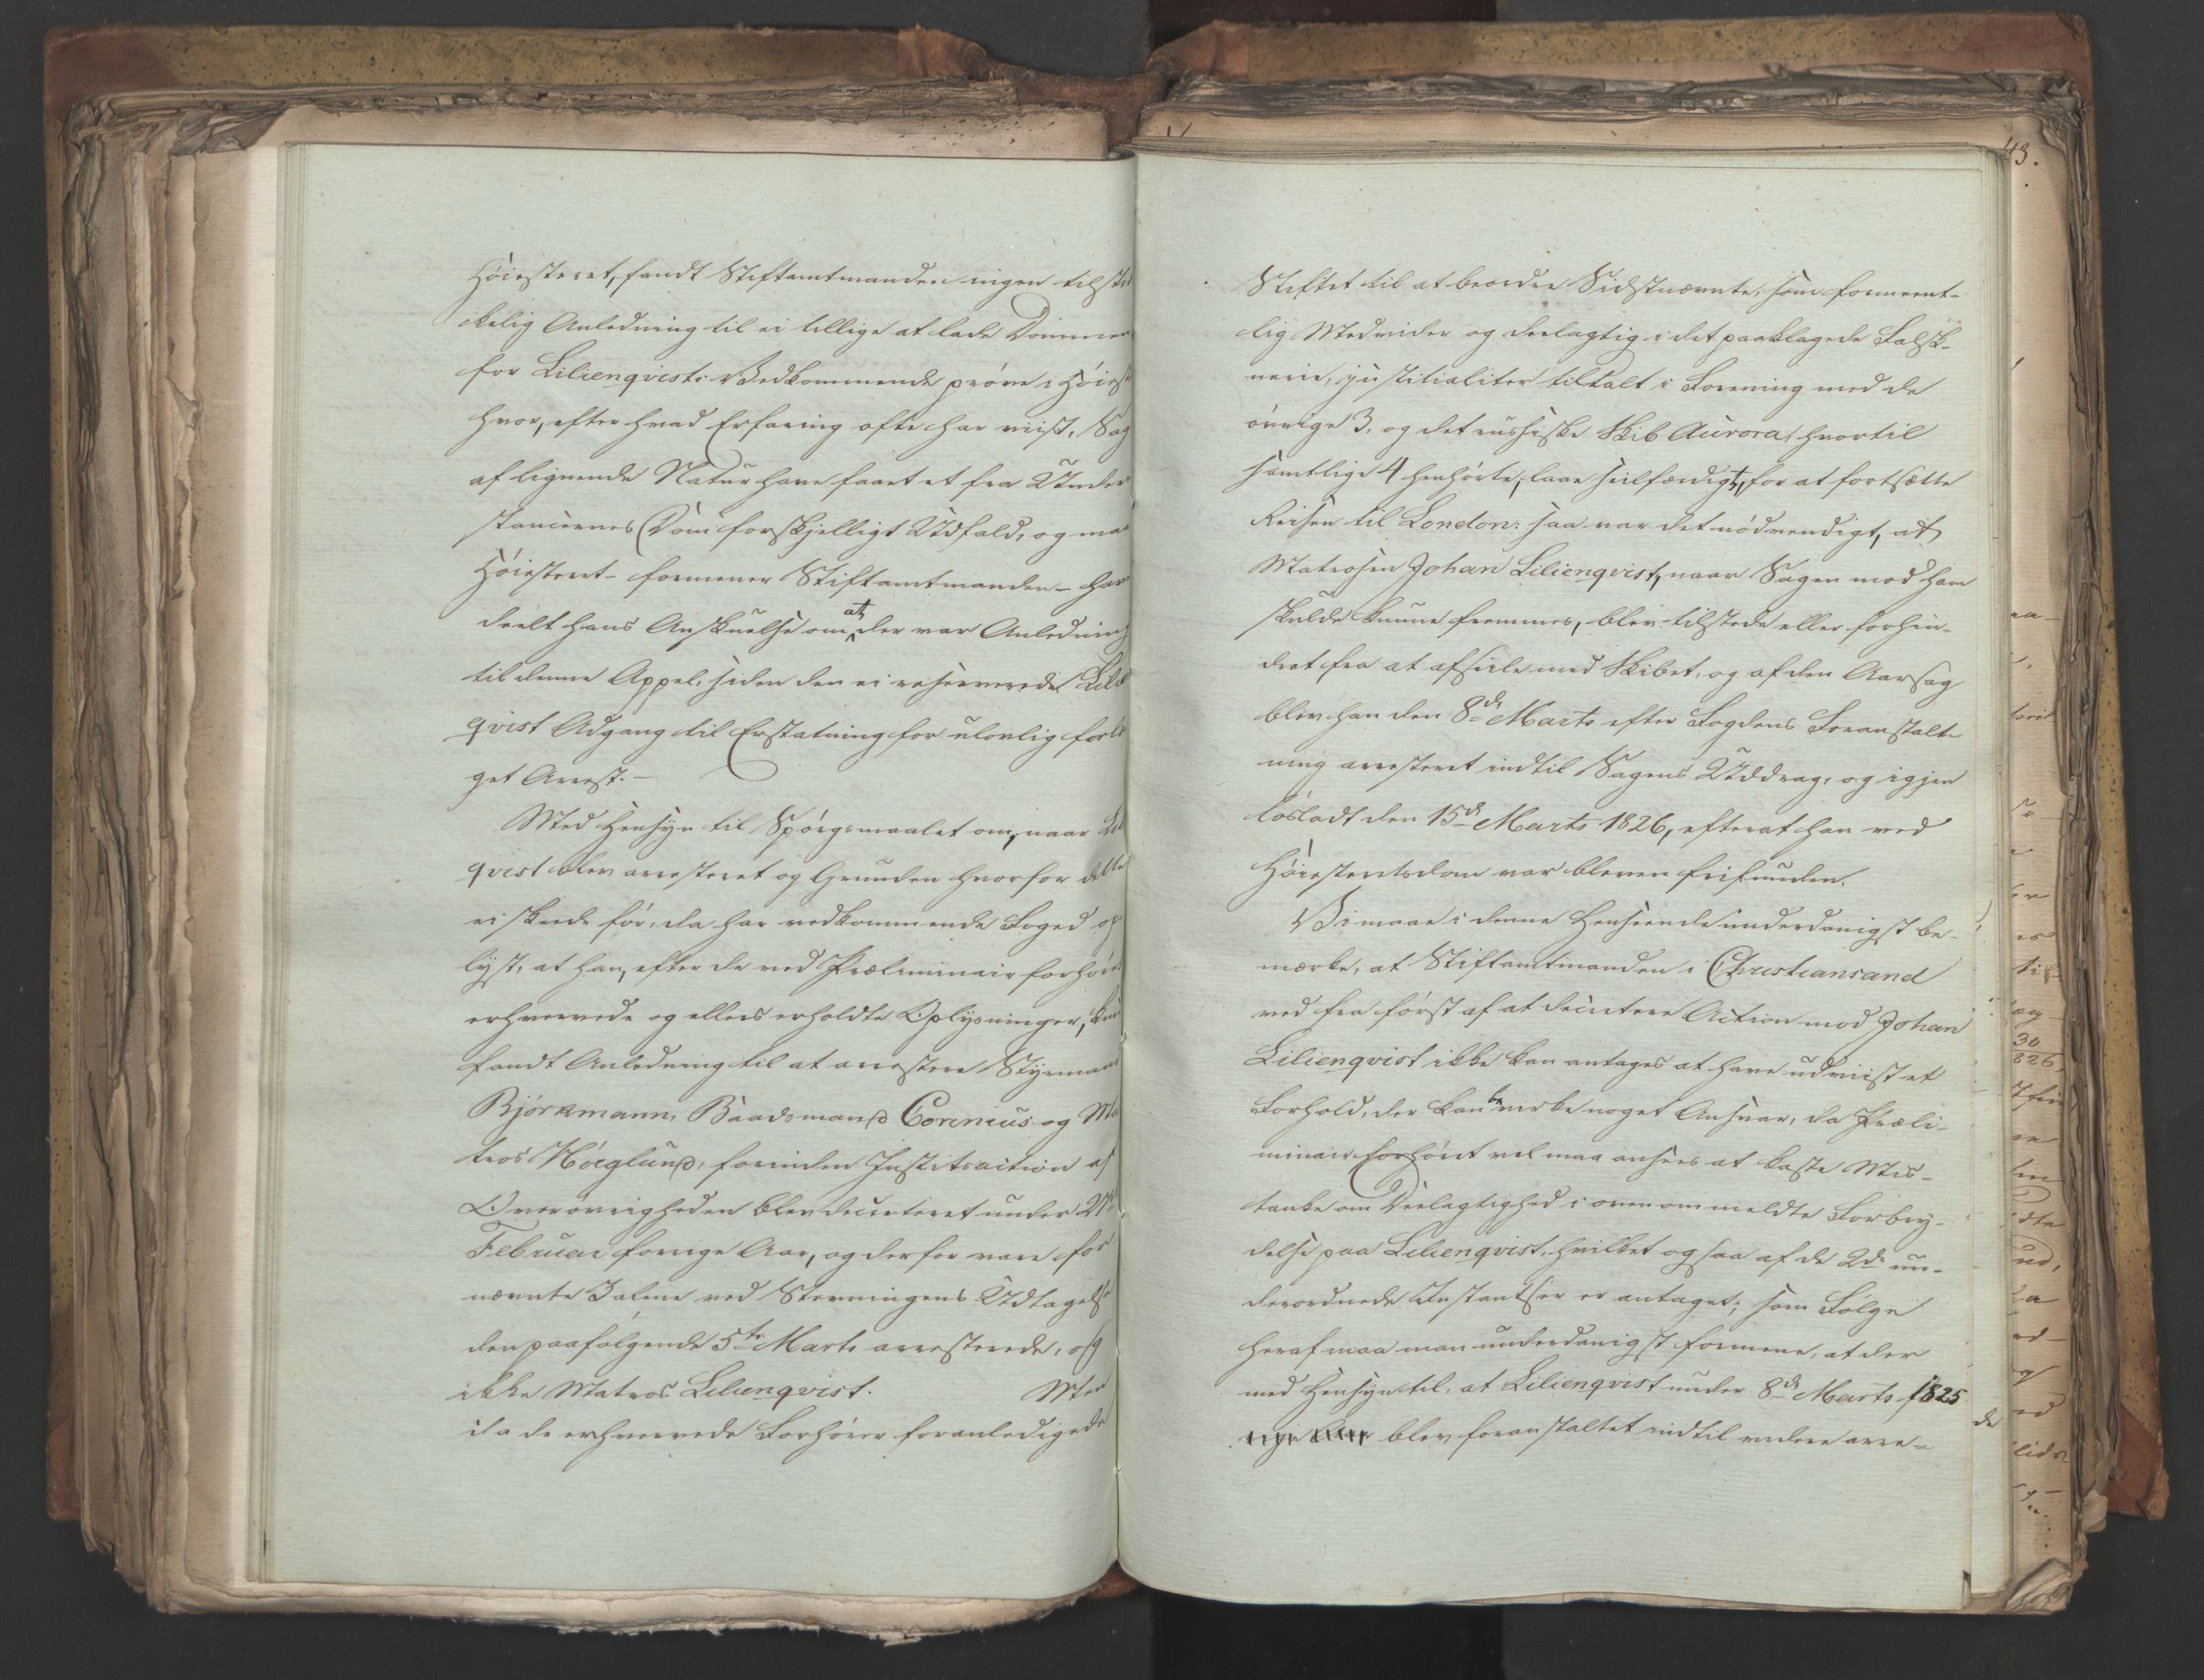 Høiesteret, fandt Stiftamtmanden ingen tilstræ
kkelig Anledning til ei tillige at lade Dommen
for Lilienqvists Vedkommende prøve i Høieste
hvor, efter hvad Erfaring ofte har viist, Sag
af lignende Natur have faaet et fra Under
stancernes Dom forskjelligt Udfald, og maa
Høiesteret – formener Stiftamtmanden – have
deelt hans Anskuelse om at der var Anledning
til denne Appel, siden den ei reserverede Lili
qvist Adgang til Erstatning for ulovlig forlæ
get Arrest. –
Med Hensyn til Spørgsmaalet om, naar Lil
qvist blev arresteret og Grunden hvorfor dette
ei skeede før, da har vedkommende Foged op
lyst, at han, efter de ved Præliminair forhøre
erhvervede og ellers erholdte Oplysninger, kun
fandt Anledning til at arrestere Styrmand
Björkmann, Baadsmand Corenius og Ma
tros Höeglund, forinden Justitsaction af
Overøvrigheden blev decreteret under 21de
Februar forrige Aar, og derfor vare for
nævnte 3 alene ved Stevningens Udtagelse
den paafølgende 5te Marts arresterede, og
ikke Matros Lilienqvist. Men
da de erhvervede Forhører foranledigede
43.
Stiftet til at beordre Sidstnævnte, som formeent-
lig Medvider og deelagtig i det paaklagede Falsk-
nerie, justitialiter tiltalt i Forening med de
øvrige 3, og det russiske Skib Aurora, hvortil
samtlige 4 henhørte, laae seilfærdigt, for at fortsætte
Reisen til London: saa var det nødvendigt, at
Matrosen Johan Lilienqvist, naar Sagen mod ham
skulde kunne fremmes, blev tilstede eller forhin-
dret fra at afseile med Skibet, og af den Aarsag
blev han den 8de Marts efter Fogdens Foranstalt-
ning arresteret indtil Sagens Uddrag, og igjen
løsladt den 15de Marts 1826, efterat han ved
Høiesteretsdom var bleven frifunden.
Vi maae i denne Henseende underdanigst be-
mærke, at Stiftamtmanden i Christiansand
ved fra først af at decretere Action mod Johan
Lilienqvist ikke kan antages at have udviist et
Forhold, der kan bevirke noget Ansvar, da Præli-
minairforhøret vel maa ansees at kaste Mis-
tanke om Deelagtighed i ovenommeldte Forbry-
delse paa Lilienqvist, hvilket ogsaa af de 2de un-
derordnede Instantser er antaget; som Følge
heraf maa man underdanigst formene, at der
med Hensyn til, at Lilienqvist under 8de Marts 1825
blev foranstaltet indtil videre arre-